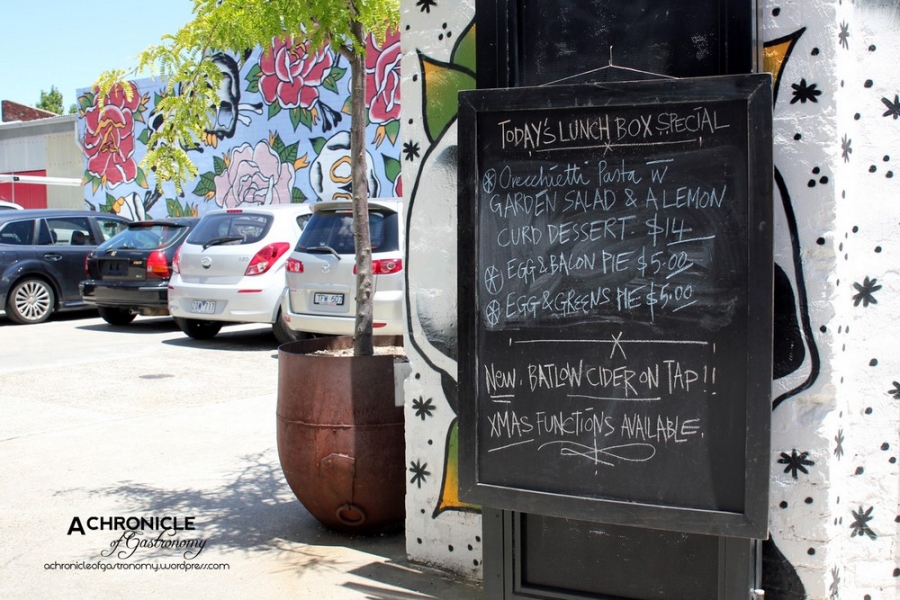 TODAY'S LUNCH BOX SPECIAL
Orecchietti Pasta W
GARDEN SALAD & A LEMON
CURD DESSERT. $14
EGG & BALON PIE $5.00
EGG & GREENS PIE $5.00
NEW. BATLOW CIDER ON TAP!!
XMAS FUNCTIONS AVAILABLE.
A CHRONICLE
of Gastronomy
achronicleofgastronomy.wordpress.com